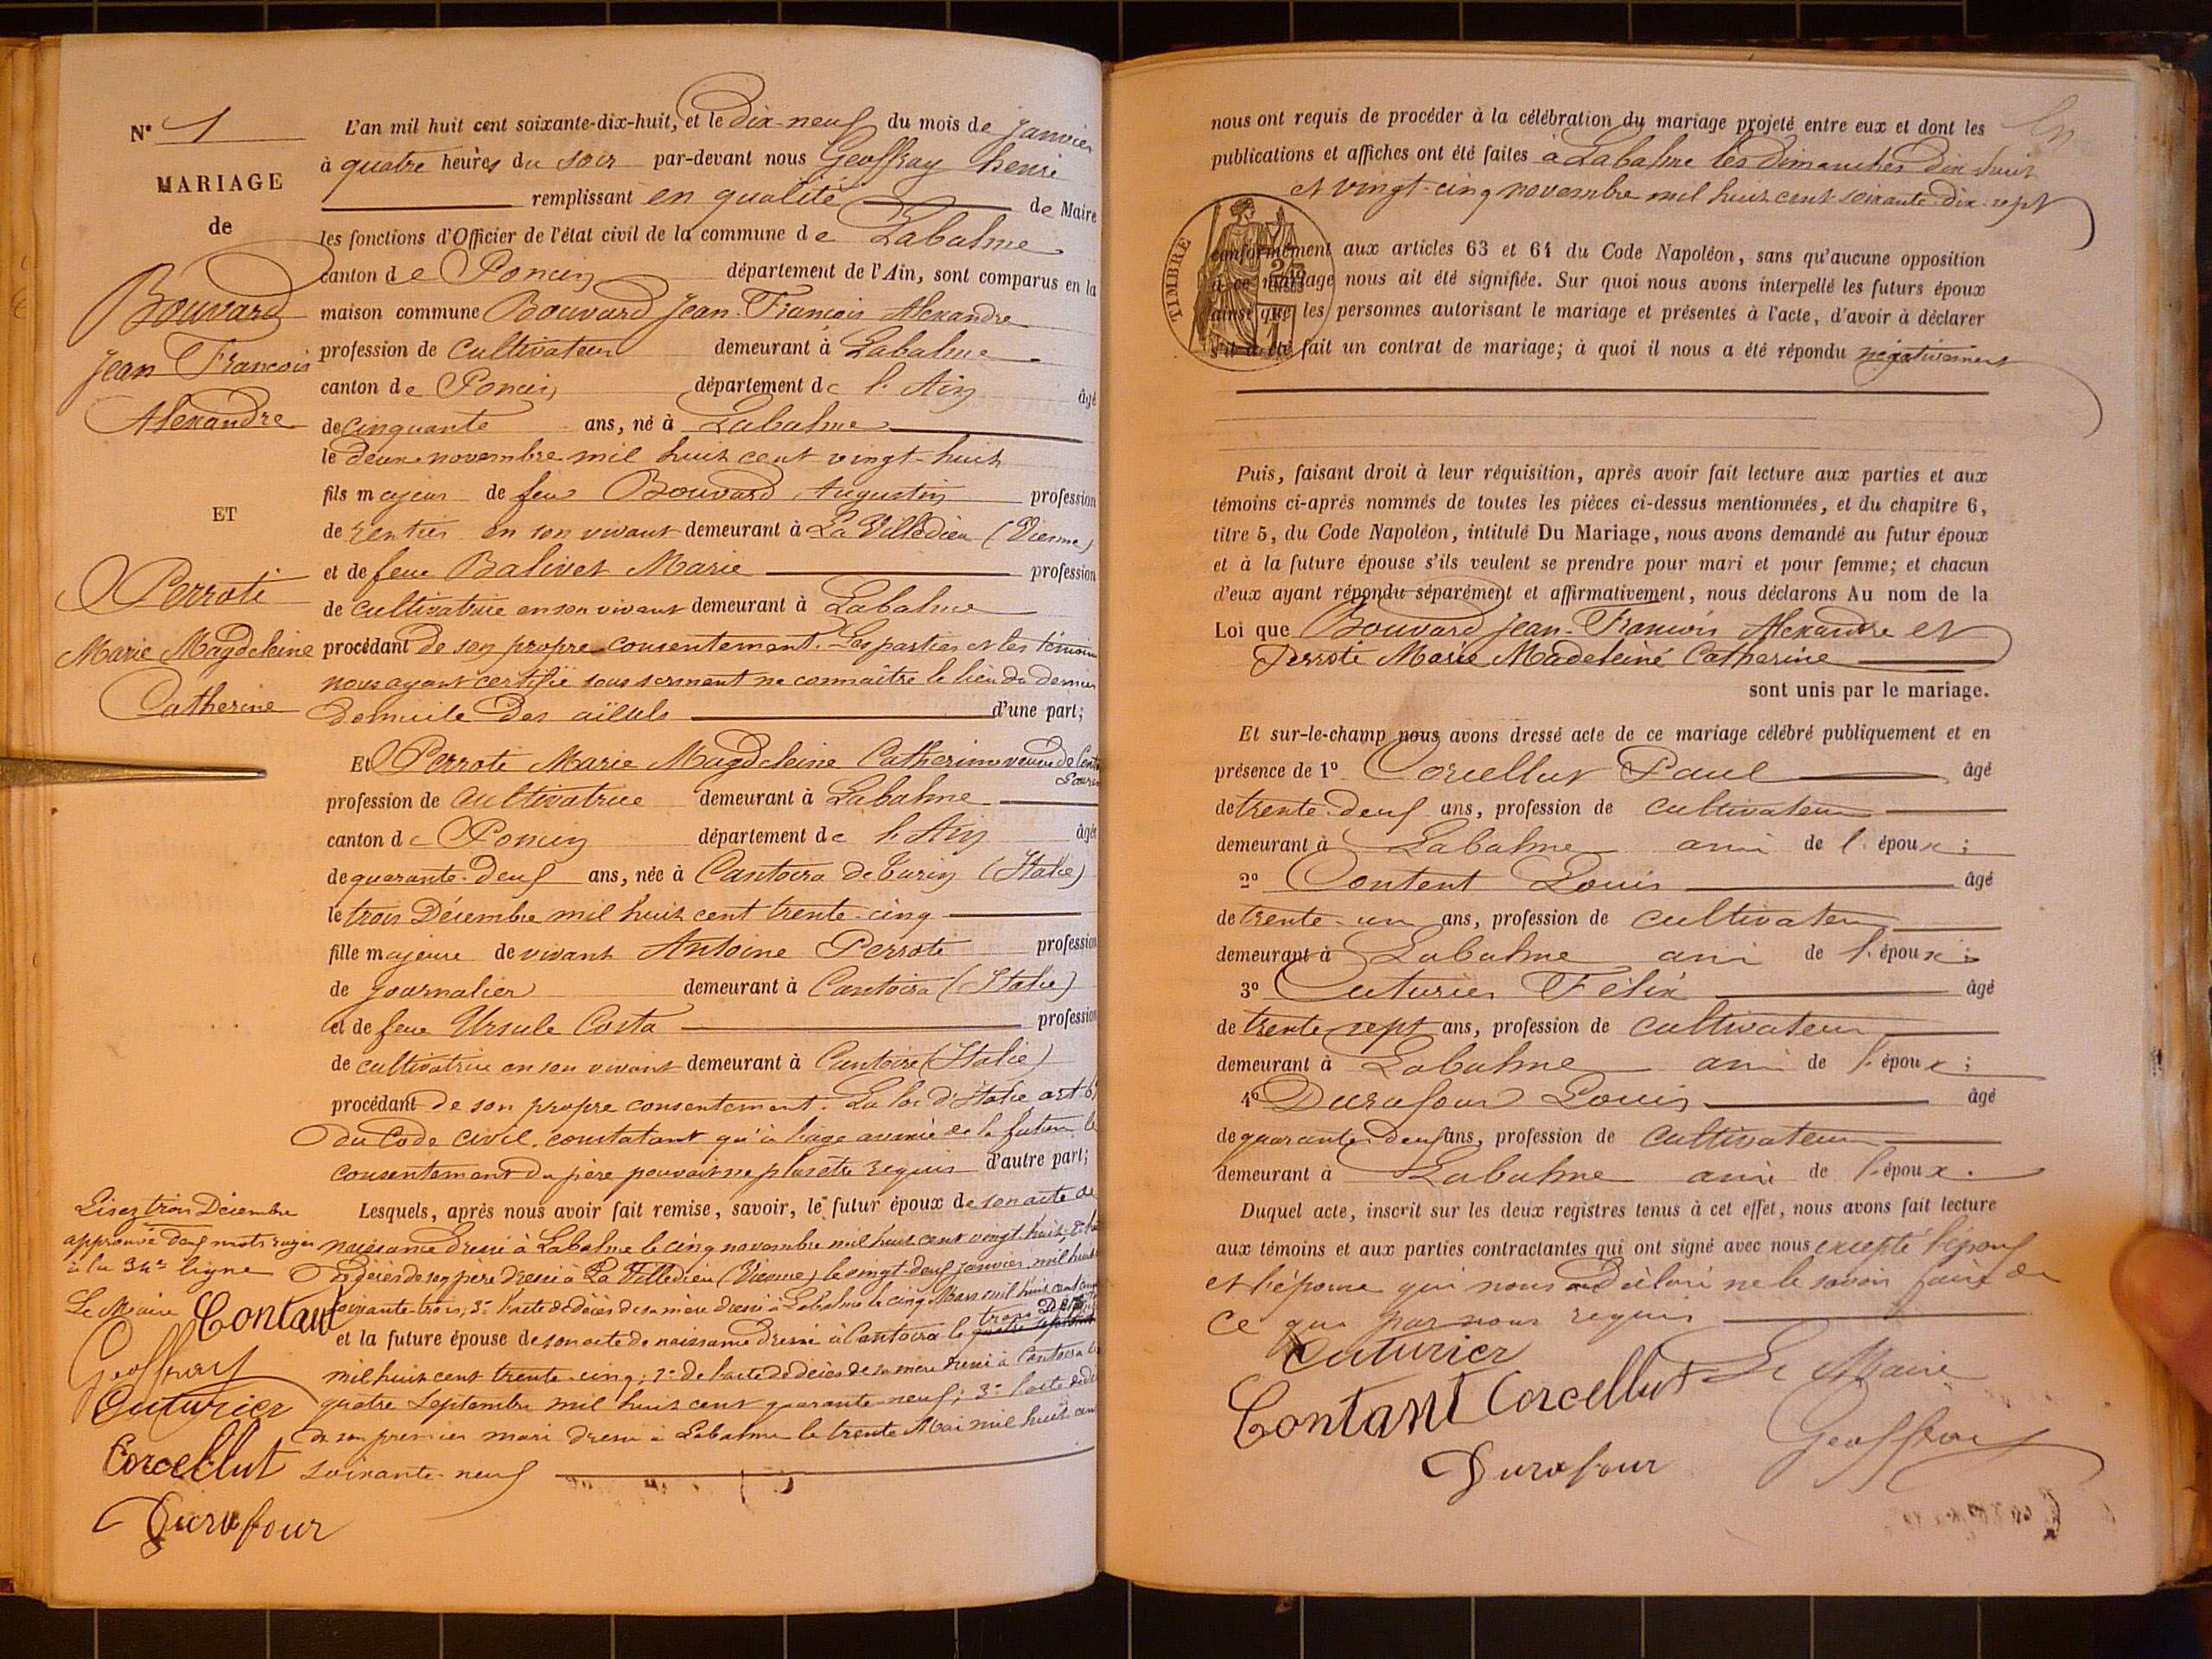 N° 1
MARIAGE
de
Bouvard
Jean François
Alexandre
ET
Perroti
Marie Magdeleine
Catherine
L'an mil huit cent soixante-dix-huit, et le dix-neuf du mois de Janvier
à quatre heures du soir par-devant nous Geoffray henri
remplissant en qualité de Maire
les fonctions d'Officier de l'état civil de la commune de Labalme
canton de Poncin département de l'Ain, sont comparus en la
maison commune Bouvard Jean-François Alexandre
profession de Cultivateur demeurant à Labalme
canton de Poncin département de l'Ain âgé
de cinquante ans, né à Labalme
le deux novembre mil huit cent vingt-huit
fils majeur de feu Bouvard Augustin profession
de rentier en son vivant demeurant à La Villedieu (Vienne)
et de feue Balivet Marie profession
de cultivatrice en son vivant demeurant à Labalme
procédant de son propre consentement. Les parties et les témoins
nous ayant certifié sous serment ne connaître le lieu du dernier
domicile des aïeuls d'une part;
Et Perroti Marie Magdeleine Catherine veuve de
profession de cultivatrice demeurant à Labalme
canton de Poncin département de l'Ain âgée
de quarante-deux ans, née à Cantoira de Turin (Italie)
le trois Décembre mil huit cent trente-cinq
fille majeure de vivant Antoine Perroti profession
de journalier demeurant à Cantoira (Italie)
et de feue Ursule Costa profession
de cultivatrice en son vivant demeurant à Cantoira (Italie)
procédant de son propre consentement. La loi d'Italie art.
du Code civil, constatant qu'à l'âge avancé de la future le
consentement du père pouvait ne plus être requis d'autre part;
Lesquels, après nous avoir fait remise, savoir, le futur époux de son acte de
naissance dressé à Labalme le cinq novembre mil huit cent vingt huit,
décès de son père dressé à La Villedieu (Vienne) le vingt-deux janvier mil huit
soixante-trois; 3° l'acte de décès de sa mère dressé à Labalme le cinq Mars mil huit cent
trois
et la future épouse de son acte de naissance dressé à Cantoira le quatre septembre
mil huit cent trente-cinq; 2° de l'acte de décès de sa mère dressé à Cantoira le
quatre Septembre mil huit cent quarante-neuf; 3° l'acte de
de son premier mari dressé à Labalme le trente Mai mil huit cent
soixante-neuf
Lisez trois Décembre
approuvé deux mots rayés
à la 34e ligne
Le Maire
Contant
Geoffray
Cuturier
Corcellut
Durafour
nous ont requis de procéder à la célébration du mariage projeté entre eux et dont les
publications et affiches ont été faites à Labalme les Dimanches dix huit
et vingt-cinq novembre mil huit cent soixante-dix-sept
TIMBRE
conformément aux articles 63 et 64 du Code Napoléon, sans qu'aucune opposition
à ce mariage nous ait été signifiée. Sur quoi nous avons interpellé les futurs époux
ainsi que les personnes autorisant le mariage et présentes à l'acte, d'avoir à déclarer
s'il a été fait un contrat de mariage; à quoi il nous a été répondu négativement
Puis, faisant droit à leur réquisition, après avoir fait lecture aux parties et aux
témoins ci-après nommés de toutes les pièces ci-dessus mentionnées, et du chapitre 6,
titre 5, du Code Napoléon, intitulé Du Mariage, nous avons demandé au futur époux
et à la future épouse s'ils veulent se prendre pour mari et pour femme; et chacun
d'eux ayant répondu séparément et affirmativement, nous déclarons Au nom de la
Loi que Bouvard Jean-François Alexandre et
Perroti Marie Madeleine Catherine
sont unis par le mariage.
Et sur-le-champ nous avons dressé acte de ce mariage célébré publiquement et en
présence de 1° Corcellut Paul âgé
de trente-deux ans, profession de cultivateur
demeurant à Labalme ami de l'époux;
2° Content Louis âgé
de trente-un ans, profession de cultivateur
demeurant à Labalme ami de l'époux;
3° Cuturier Félix âgé
de trente sept ans, profession de cultivateur
demeurant à Labalme ami de l'époux;
4° Durafour Louis âgé
de quarante deux ans, profession de Cultivateur
demeurant à Labalme ami de l'époux.
Duquel acte, inscrit sur les deux registres tenus à cet effet, nous avons fait lecture
aux témoins et aux parties contractantes qui ont signé avec nous excepté l'époux
et l'épouse qui nous ont déclaré ne le savoir faire de
ce que par nous requis
Cuturier
Contant Corcellut Le Maire
Durafour Geoffray